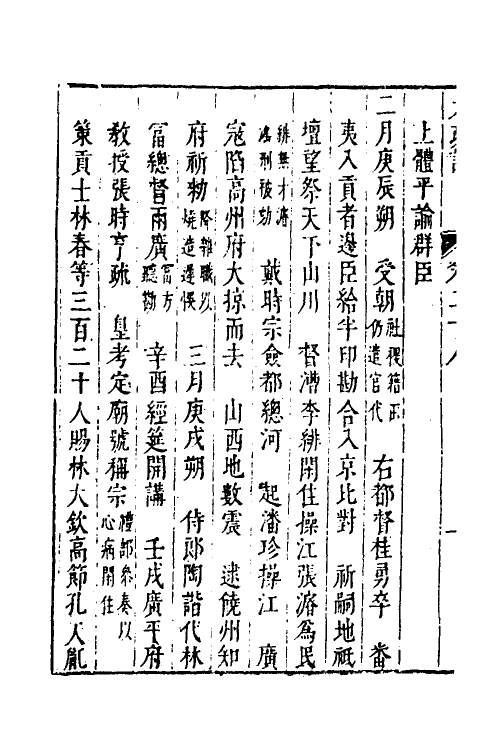 上體平諭群臣
二月庚辰朔　受朝社稷藉田仍遣官代　右都督桂勇卒　番
夷入貢者邊臣給半印勘合入京比對　祈嗣地祇
壇望祭天下山川　督漕李緋閑住操江張潅爲民
緋無才潅濫刑被劾　戴時宗僉都總河　起潘珍操江　廣
寇陷高州府大掠而去　山西地數震　逮饒州知
府祈勑降雜職以燒造遲悞　三月庚戌朔　侍郎陶諧代林
富總督兩廣富方聽勘　辛酉經筵開講　壬戌廣平府
教授張時亨疏　皇考定廟號稱宗禮部叅奏以心病閑住
策貢士林春等三百二十人賜林大欽高節孔天胤